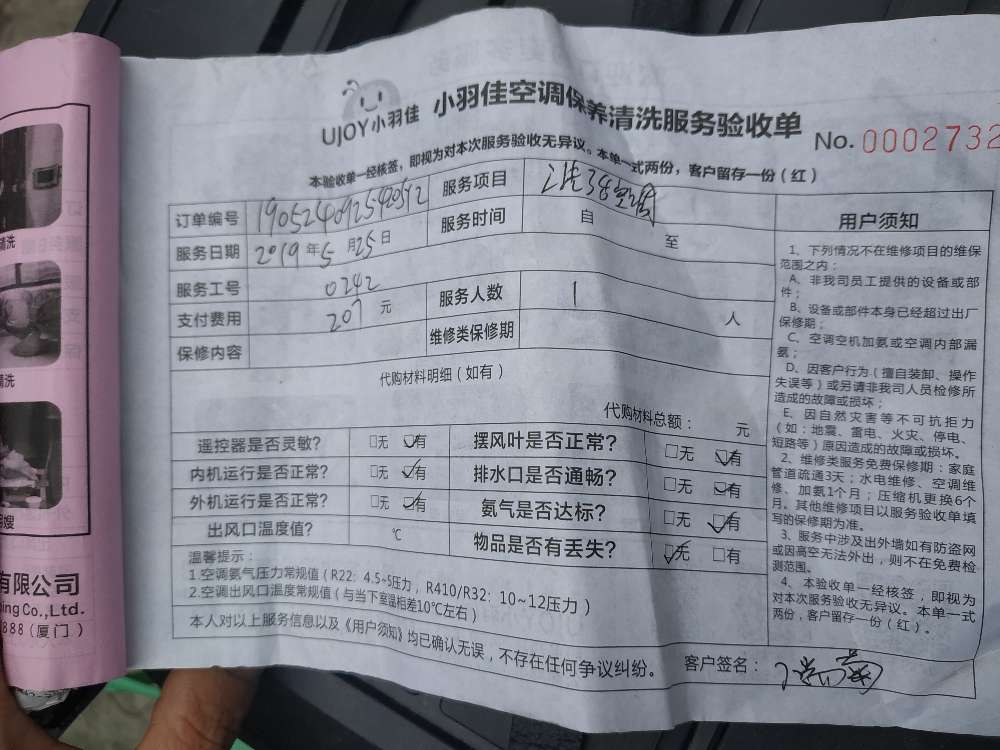 UJOY小羽佳 小羽佳空调保养清洗服务验收单 No. 0002732
本验收单一经核签，即视为对本次服务验收无异议。本单一式两份，客户留存一份（红）
订单编号 服务项目
服务日期 2019年5月25日 服务时间 自 至
服务工号 0242 服务人数 1 人
支付费用 207 元
保修内容 维修类保修期
代购材料明细（如有）
代购材料总额： 元
遥控器是否灵敏？ □无 ☑有 摆风叶是否正常？ □无 ☑有
内机运行是否正常？ □无 ☑有 排水口是否通畅？ □无 ☑有
外机运行是否正常？ □无 ☑有 氨气是否达标？ □无 ☑有
出风口温度值？ ℃ 物品是否有丢失？ ☑无 □有
温馨提示：
1.空调氨气压力常规值（R22：4.5~5压力，R410/R32：10~12压力）
2.空调出风口温度常规值（与当下室温相差10℃左右）
本人对以上服务信息以及《用户须知》均已确认无误，不存在任何争议纠纷。 客户签名：
用户须知
1、下列情况不在维修项目的维保
范围之内：
A、非我司员工提供的设备或部
件；
B、设备或部件本身已经超过出厂
保修期；
C、空调空机加氨或空调内部漏
氨；
D、因客户行为（擅自装卸、操作
失误等）或另请非我司人员检修所
造成的故障或损坏；
E、因自然灾害等不可抗拒力
（如：地震、雷电、火灾、停电、
短路等）原因造成的故障或损坏。
2、维修类服务免费保修期：家庭
管道疏通3天；水电维修、空调维
修、加氨1个月；压缩机更换6个
月。其他维修项目以服务验收单填
写的保修期为准。
3、服务中涉及出外墙如有防盗网
或因高空无法外出，则不在免费检
测范围。
4、本验收单一经核签，即视为
对本次服务验收无异议。本单一式
两份，客户留存一份（红）。
清洗
清洗
嫂
有限公司
ping Co.,Ltd.
888（厦门）